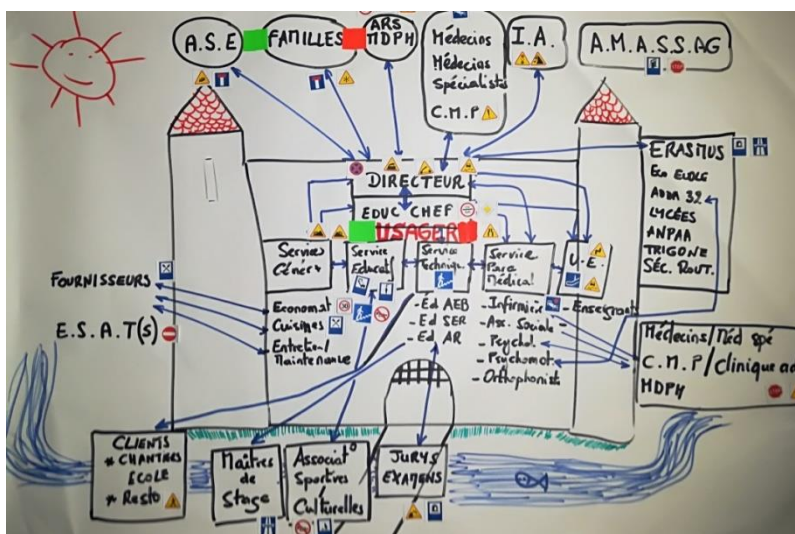 A.S.E
FAMILLES
ARS
MDPH
Médecins
Médecins
Spécialistes
C.M.P
I.A.
A.M.A.S.S.AG
DIRECTEUR
EDUC CHEF
USAGER
Services
Génér x
Service
Educatif
Service
Technique
Service
Para
Médical
U.E.
ERASMUS
Eco ECOLE
ADDA 32
LYCÉES
ANPAA
TRIGONE
SÉC. ROUT.
FOURNISSEURS
E.S.A.T(s)
- Economat
- Cuisines
- Entretien/
Maintenance
- Ed AEB
- Ed SER
- Ed AR
- Infirmière
- Ass. Sociale
- Psychol.
- Psychomot.
- Orthophonist
- Enseignants
Médecins/Méd spé
C.M.P/Clinique
MDPH
CLIENTS
* CHANTIERS
ECOLE
* Resto
Maîtres
de
Stage
Associat°
Sportives
/
Culturelles
JURYS
EXAMENS